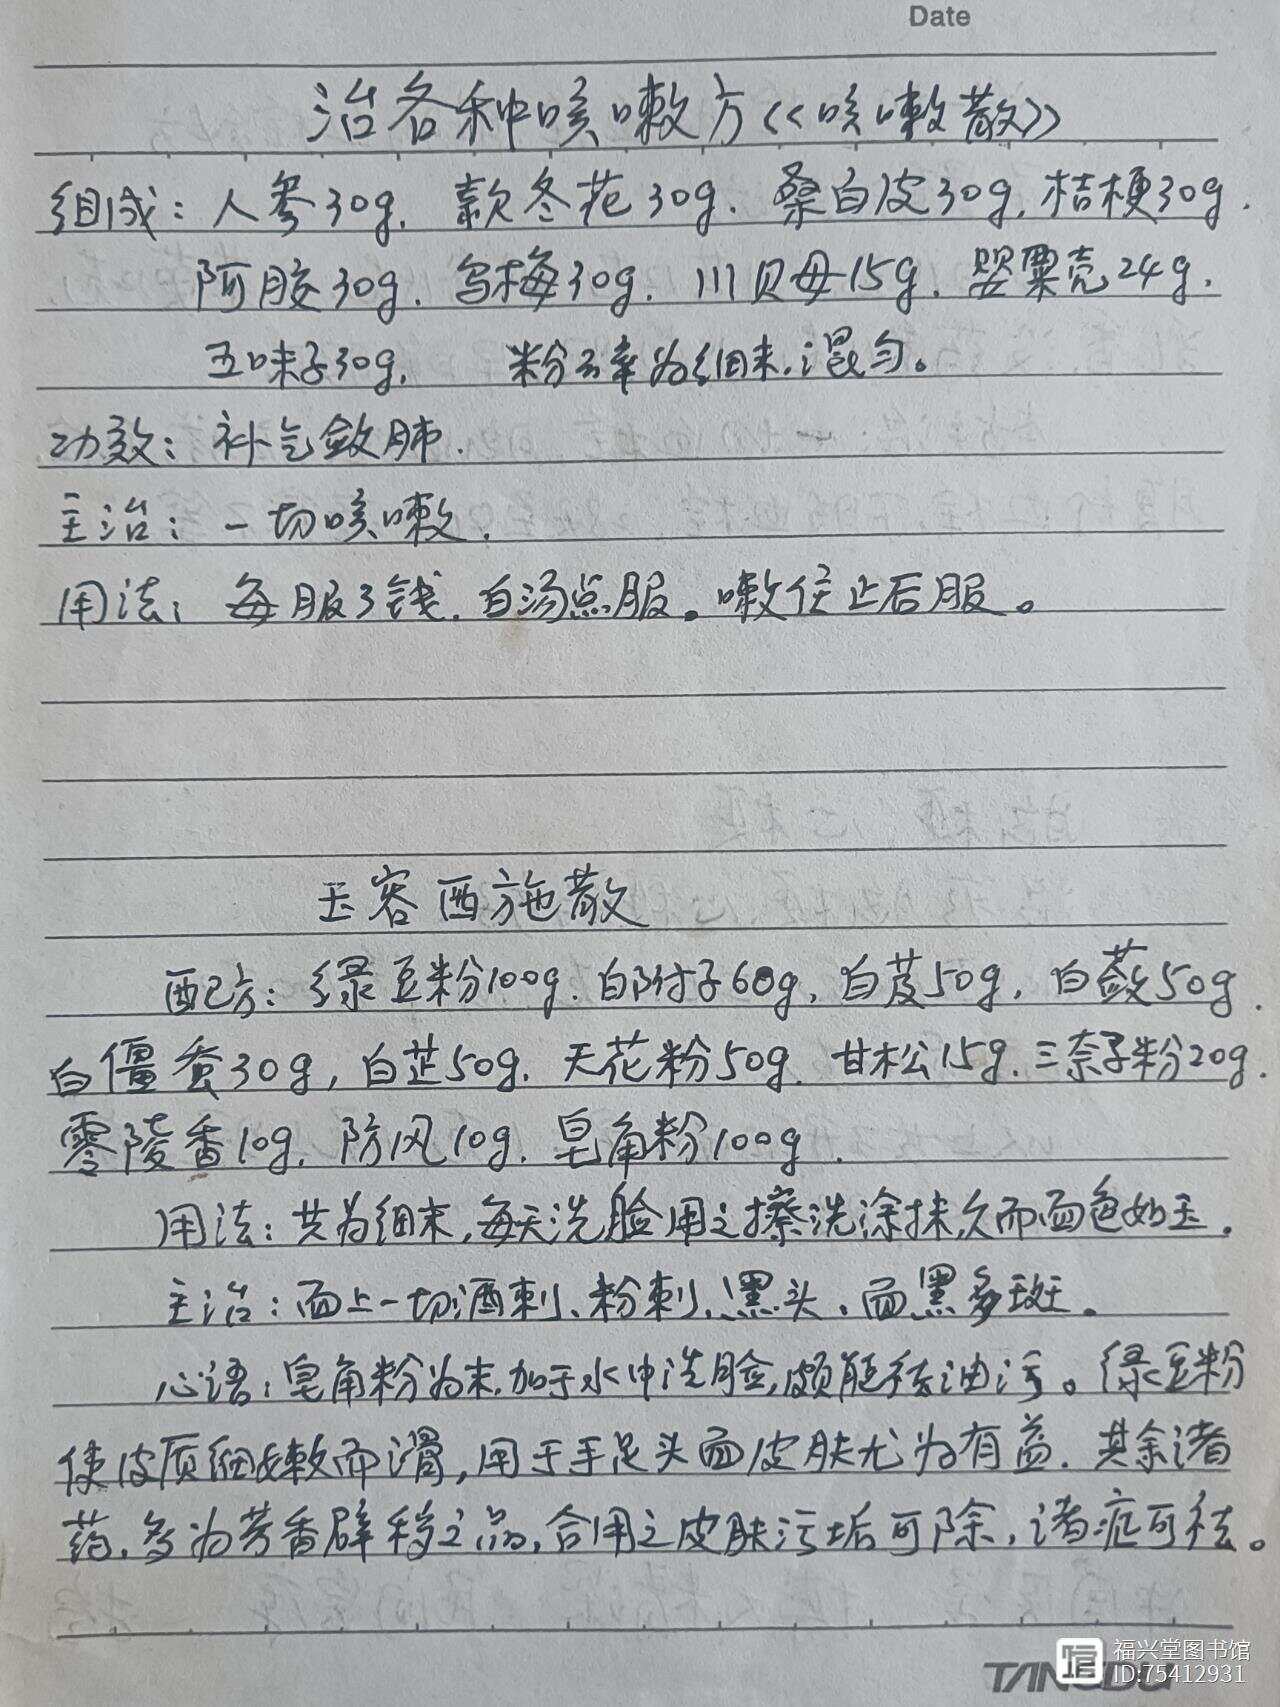 Date
治各种咳嗽方《咳嗽散》
组成：人参30g. 款冬花30g. 桑白皮30g. 桔梗30g.
阿胶30g. 乌梅30g. 川贝母15g. 罂粟壳24g.
五味子30g. 粉碎为细末. 混匀。
功效：补气敛肺.
主治：一切咳嗽.
用法：每服3钱. 白汤点服。嗽住止后服。
玉容西施散
配方：绿豆粉100g. 白附子60g, 白芨50g, 白蔹50g.
白僵蚕30g, 白芷50g. 天花粉50g. 甘松15g. 三奈子粉20g.
零陵香10g. 防风10g. 皂角粉100g.
用法：共为细末, 每天洗脸用之擦洗涂抹, 久而面色如玉.
主治：面上一切酒刺、粉刺、黑头、面黑多斑。
心语：皂角粉为末, 加于水中洗脸, 颇能祛油污。绿豆粉
使皮质细嫩而滑, 用于手足头面皮肤尤为有益. 其余诸
药, 多为芳香辟秽之品, 合用之皮肤污垢可除, 诸症可祛。
福兴堂图书馆
ID:75412931